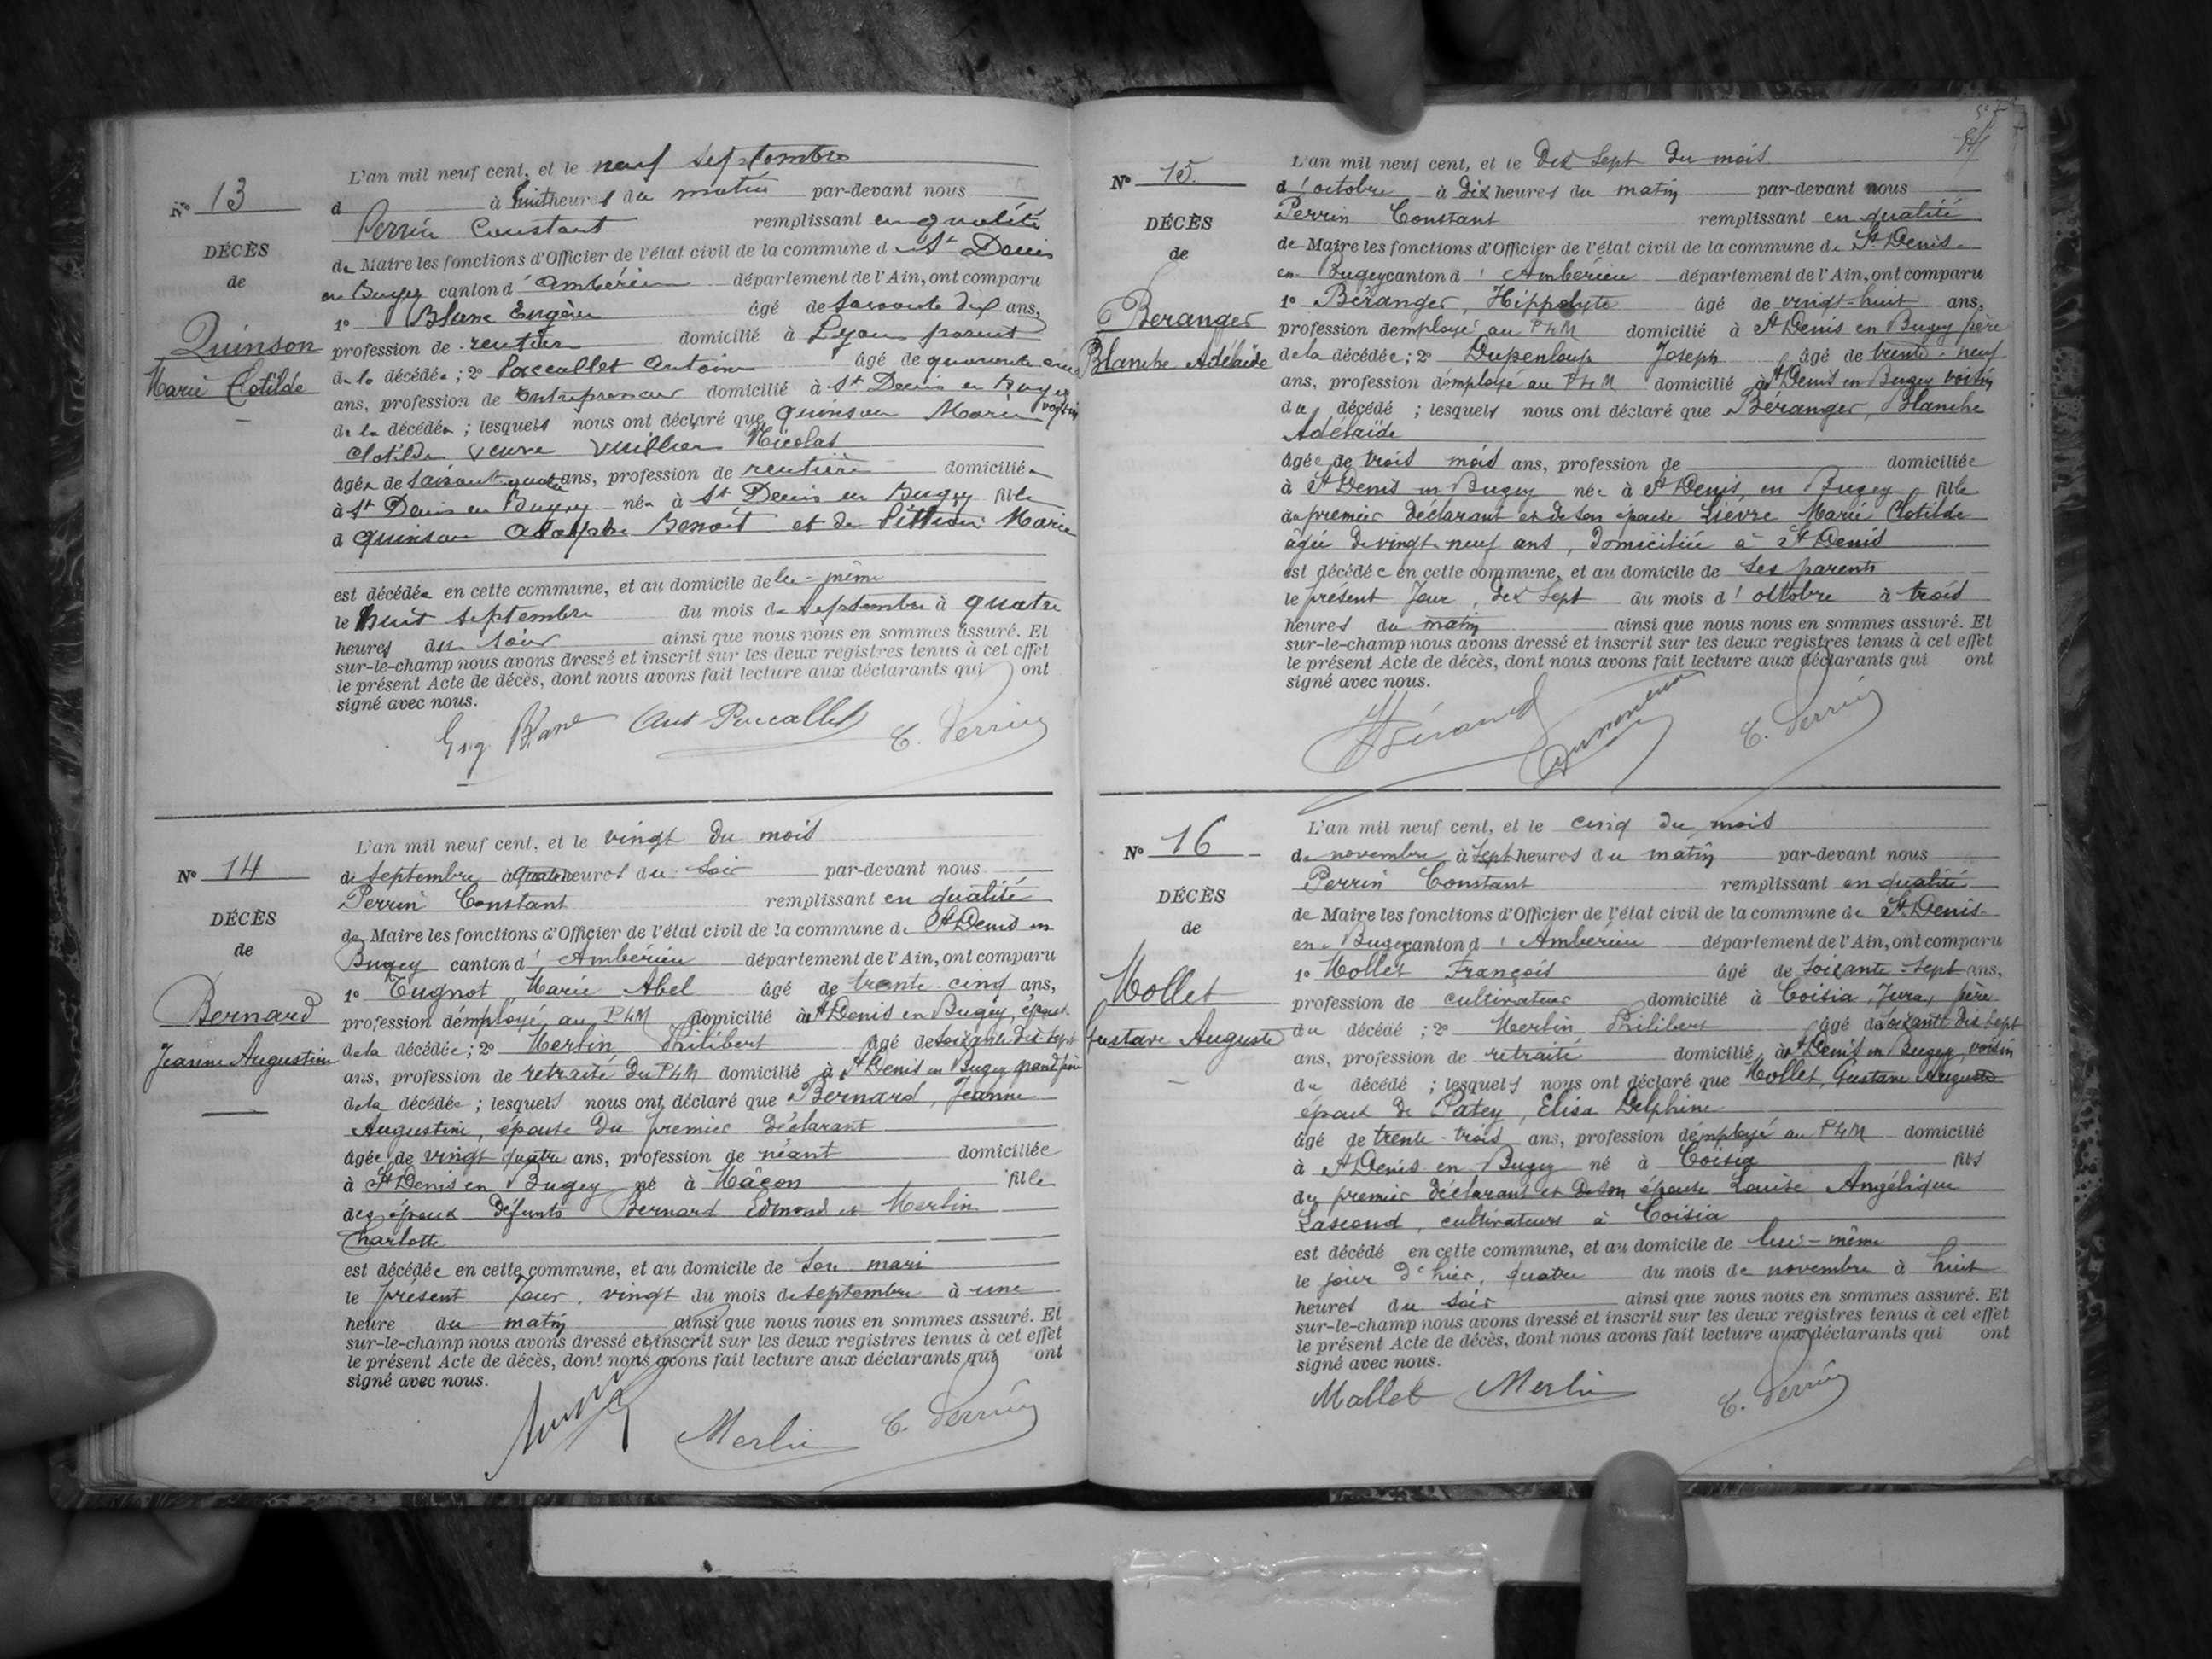 Nº 13
DÉCÈS
de
Quinson
Marie Clotilde
L'an mil neuf cent, et le neuf septembre
d à huit heures du matin par-devant nous
Perrin Constant remplissant en qualité
de Maire les fonctions d'Officier de l'état civil de la commune d St Denis
en Bugey canton d'Ambérieu département de l'Ain, ont comparu
1º Blanc Eugène âgé de soixante dix ans,
profession de rentier domicilié à Lyon parent
de la décédée ; 2º Poccallet Antoine âgé de quarante cinq
ans, profession de Entrepreneur domicilié à St Denis en Bugey voisin
de la décédée ; lesquels nous ont déclaré que Quinson Marie
Clotilde veuve Vuillier Nicolas
âgée de soixante quatre ans, profession de rentière domiciliée
à St Denis en Bugey née à St Denis en Bugey fille
d quinson Adolphe Benoit et de Marie
est décédée en cette commune, et au domicile de lui-même
le huit septembre du mois de septembre à quatre
heures du soir ainsi que nous nous en sommes assuré. Et
sur-le-champ nous avons dressé et inscrit sur les deux registres tenus à cet effet
le présent Acte de décès, dont nous avons fait lecture aux déclarants qui ont
signé avec nous.
Eug Blanc Ant Poccallet C. Perrin
Nº 14
DÉCÈS
de
Bernard
Jeanne Augustine
L'an mil neuf cent, et le vingt du mois
de septembre à quatre heures du soir par-devant nous
Perrin Constant remplissant en qualité
de Maire les fonctions d'Officier de l'état civil de la commune de St Denis en
Bugey canton d'Ambérieu département de l'Ain, ont comparu
1º Tugnot Marie Abel âgé de trente-cinq ans,
profession d'employé au PLM domicilié à St Denis en Bugey, époux
de la décédée ; 2º Merlin Philibert âgé de soixante dix sept
ans, profession de retraité du PLM domicilié à St Denis en Bugey grand père
de la décédée ; lesquels nous ont déclaré que Bernard, Jeanne
Augustine, épouse du premier déclarant
âgée de vingt quatre ans, profession de néant domiciliée
à St Denis en Bugey né à Mâcon fille
des époux défunts Bernard Edmond et Merlin
Charlotte
est décédée en cette commune, et au domicile de son mari
le présent jour, vingt du mois de septembre à une
heure du matin ainsi que nous nous en sommes assuré. Et
sur-le-champ nous avons dressé et inscrit sur les deux registres tenus à cet effet
le présent Acte de décès, dont nous avons fait lecture aux déclarants qui ont
signé avec nous.
Merlin C. Perrin
Nº 15
DÉCÈS
de
Beranger
Blanche Adélaïde
L'an mil neuf cent, et le dix sept du mois
d'octobre à dix heures du matin par-devant nous
Perrin Constant remplissant en qualité
de Maire les fonctions d'Officier de l'état civil de la commune de St Denis
en Bugey canton d'Ambérieu département de l'Ain, ont comparu
1º Béranger, Hippolyte âgé de vingt-huit ans,
profession d'employé au PLM domicilié à St Denis en Bugey père
de la décédée ; 2º Dupenloup Joseph âgé de trente-neuf
ans, profession d'employé au PLM domicilié à St Denis en Bugey voisin
du décédé ; lesquels nous ont déclaré que Béranger, Blanche
Adélaïde
âgée de trois mois ans, profession de domiciliée
à St Denis en Bugey née à St Denis, en Bugey fille
du premier déclarant et de son épouse Lievre Marie Clotilde
âgée de vingt-neuf ans, domiciliée à St Denis
est décédée en cette commune, et au domicile de ses parents
le présent jour, dix sept du mois d'octobre à trois
heures du matin ainsi que nous nous en sommes assuré. Et
sur-le-champ nous avons dressé et inscrit sur les deux registres tenus à cet effet
le présent Acte de décès, dont nous avons fait lecture aux déclarants qui ont
signé avec nous.
C. Perrin
Nº 16
DÉCÈS
de
Mollet
Gustave Auguste
L'an mil neuf cent, et le cinq du mois
de novembre à sept heures du matin par-devant nous
Perrin Constant remplissant en qualité
de Maire les fonctions d'Officier de l'état civil de la commune de St Denis
en Bugey canton d'Ambérieu département de l'Ain, ont comparu
1º Mollet François âgé de soixante-sept ans,
profession de cultivateur domicilié à Coisia, Jura, père
du décédé ; 2º Merlin Philibert âgé de soixante dix sept
ans, profession de retraité domicilié à St Denis en Bugey, voisin
du décédé ; lesquels nous ont déclaré que Mollet, Gustave Auguste
époux de Patey, Elisa Delphine
âgé de trente-trois ans, profession d'employé au PLM domicilié
à St Denis en Bugey né à Coisia fils
du premier déclarant et de son épouse Louise Angélique
Lascoud, cultivateurs à Coisia
est décédé en cette commune, et au domicile de lui-même
le jour d'hier, quatre du mois de novembre à huit
heures du soir ainsi que nous nous en sommes assuré. Et
sur-le-champ nous avons dressé et inscrit sur les deux registres tenus à cet effet
le présent Acte de décès, dont nous avons fait lecture aux déclarants qui ont
signé avec nous.
Mollet Merlin C. Perrin